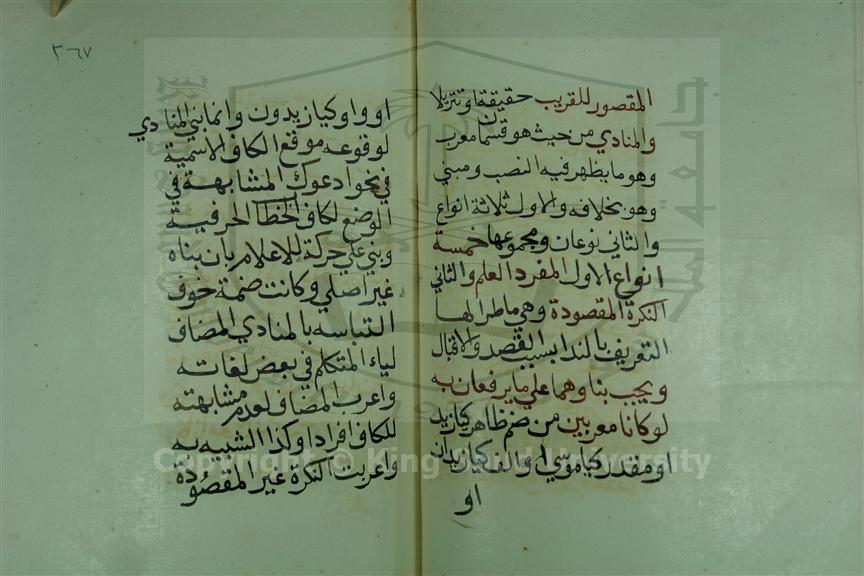 المقصور للقريب حقيقة او تنزيلا
والمنادي من حيث هو قسمان معرب
وهو ما يظهر فيه النصب ومبني
وهو بخلافه والاول ثلاثة انواع
والثاني نوعان ومجموعها خمسة
انواع الاول المفرد العلم والثاني
النكرة المقصودة وهي ما طرا لها
التعريف بالندا بسبب القصد والاقبال
ويجب بناوهما علي ما يرفعان به
لو كانا معربين من ضم ظاهر كيازيد
او مقدر كياموسي او الف كيازيدان
او
٣٦٧
او واو كيازيدون وانما بني المنادي
لوقوعه موقع الكاف الاسمية
في نحو ادعوك المشابهة في
الوضع لكاف الخطاب الحرفية
وبني علي حركة للاعلام بان بناه
غير اصلي وكانت ضمة خوف
التباسه بالمنادي المضاف
لياء المتكلم في بعض لغاته
واعرب المضاف لعدم مشابهته
للكاف افرادا وكذا الشبيه به
واعربت النكرة غير المقصودة
Copyright © King Saud University